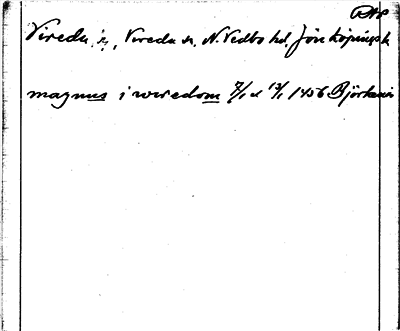 RAP
Vireda, Vireda sn, N. Vedbo hd. Jönköpings
magnus i wiredom 7/1 d 13/1 1456 Björkenäs